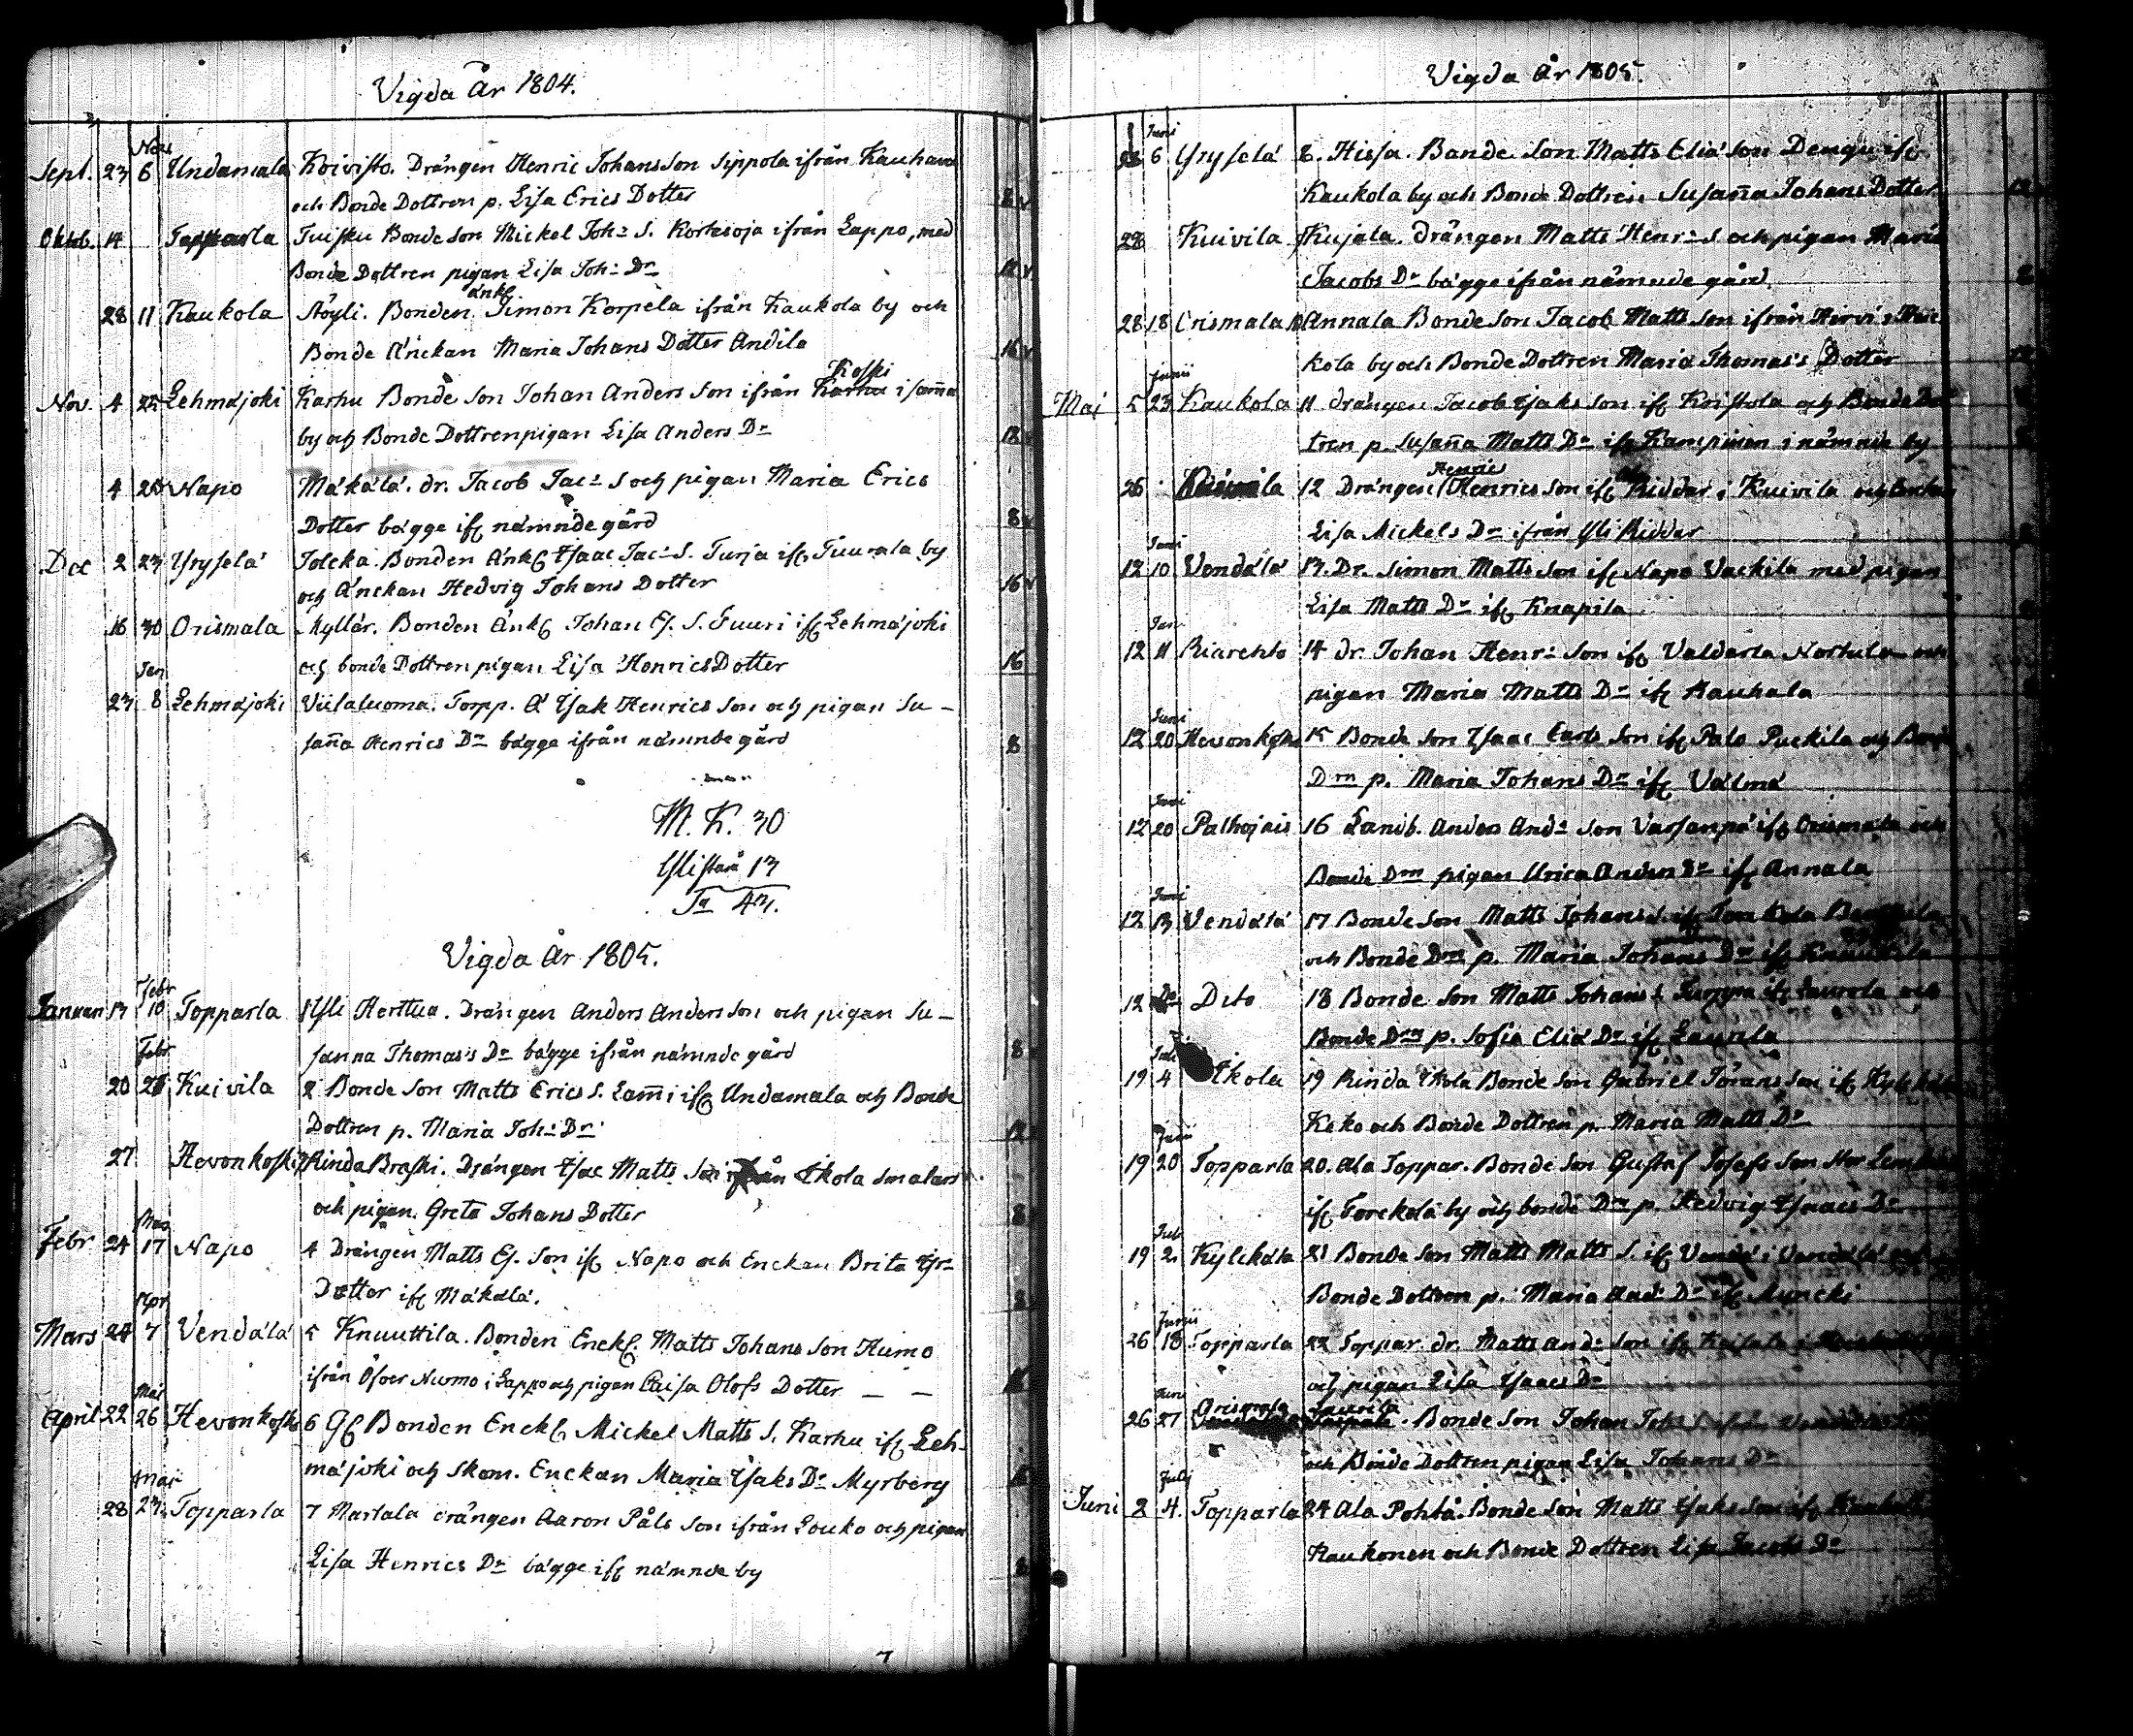 Vigda År 1804.
Nov.
Sept. 23 6 Undamala Koivisto. Drängen Henric Johansson Sippola ifrån Kauhava
och Bonde Dottren p. Lisa Erics Dotter 8
Oktob. 14 Topparla Tuisku Bonde Son Mickel Joh: S. Kortesoja ifrån Lappo, med
Bonde Dottren pigan Lisa Joh: Dr 12
änkl
28 11 Kaukola Åöyli. Bonden Simon Korpela ifrån Kaukola by och
Bonde Änckan Maria Johans Dotter Andila 16
Koski
Nov. 4 25 Lehmäjoki Karhu Bonde Son Johan Anders Son ifrån Karhu i samma
by och Bonde Dottren pigan Lisa Anders Dr 12
4 20 Napo Mäkälä. dr. Jacob Jac: S och pigan Maria Erics
Dotter bägge ifr nämnde gård 8
Dec 2 23 Yryselä Jolcka. Bonden Änkl Ysaac Jac: S. Turja ifr Tuurala by
och Änckan Hedvig Johans Dotter 16
16 30 Orismala Myllär. Bonden Änkl Johan Es. S. Suuri ifr Lehmäjoki
och bonde Dottren pigan Lisa Henrics Dotter 16
Jan
23 8 Lehmäjoki Viilaluoma. Torp. A Ysak Henrics Son och pigan Su-
sanna Henrics Dr bägge ifrån nämnde gård 8
M. K. 30
Ylistaro 13
Sa 43.
Vigda År 1805.
Febr
Januari 13 10 Topparla 1 Yli Herttua. Drängen Anders Anders Son och pigan Su-
sanna Thomas's Dr bägge ifrån nämnde gård 8
Febr
20 28 Kuivila 2 Bonde Son Matts Erics S. Lammi ifr Undamala och Bonde
Dottren p. Maria Joh: Dr 12
27 Hevonkoski 3 Rinda Braski. Drängen Ysac Matts Son ifrån Ikola
och pigan Greta Johans Dotter 8
Mars
Febr 24 17 Napo 4 Drängen Matts Es. Son ifr Napo och Enckan Brita
Dotter ifr Mäkälä. 8
Apr
Mars 24 7 Vendälä 5 Knuuttila. Bonden Enckl. Matts Johans Son Humo
ifrån Öfver Nurmo i Lappo och pigan Caisa Olofs Dotter
Maj
April 22 26 Hevonkoski 6 Gl Bonden Enckl Mickel Matts S. Karhu ifr Leh-
mäjoki och Skom. Enckan Maria Ysaks Dr Myrberg
Maj
28 23 Topparla 7 Martala drängen Aaron Påls Son ifrån Louko och pigan
Lisa Henrics Dr bägge ifr nämnde by 8
Vigda År 1805.
Juni
6 Yryselä 8. Hissa. Bonde Son Matts Eliä Son ifr
Kaukola by och Bonde Dottren Susanna Johans Dotter 12
28 Kuivila 9 Kujala. drängen Matts Henr: S och pigan Maria
Jacobs Dr bägge ifrån nämnde gård. 8
28 18 Orismala 10 Annala Bonde Son Jacob Matts Son ifrån
kola by och Bonde Dottren Maria Thomas's Dotter
Junii
Maj 5 23 Kaukola 11 drängen Jacob Ysaks Son ifr Kristola och Bonde Dot
tren p. Susanna Matts Dr ifr Kampinen i nämnde by
Henric
26 12 Drängen Henrics Son ifr Riddar i Kuivila och
Lisa Mickels Dr ifrån Yli Riddar
Juni
12 10 Vendälä 13. Dr. Simon Matts Son ifr Napo Vackila med pigan
Lisa Matts Dr ifr Knapila
Jun
12 11 14 dr. Johan Henr: Son ifr Valdarla och
pigan Maria Matts Dr ifr Rauhala
Juni
12 20 Hevonkoski 15 Bonde Son Ysaac Son ifr Palo Puckila och Bonde
Drn p. Maria Johans Dr ifr Välmä
Juni
12 20 Palhojais 16 Landb. Anders And: Son Varsanpä ifr Orismala och
Bonde Drn pigan Anders Dr ifr Annala
Juni
12 13 Vendälä 17 Bonde Son Matts Johans S. ifr
och Bonde Drn p. Maria Johans Dr ifr
12 Dito 18 Bonde Son Matts Johans S. ifr Laurola och
Bonde Drn p. Sofia Eliä Dr ifr Laurila
Juli
19 4 Ikola 19 Rinda Ikola Bonde Son Gabriel Jörans Son ifr
Keko och Bonde Dottren p. Maria Matts Dr
Junii
19 20 Topparla 20. Ala Toppar. Bonde Son Gustaf Josefs Son
ifr Torckola by och bonde Drn p. Hedvig Ysaacs Dr
Juli
19 2. Kylckälä 21 Bonde Son Matts Matts S. ifr i Vendälä och
Bonde Dottren p. Maria And: Dr ifr Muncki
Junii
26 18 Topparla 22 Toppar. dr. Matts And: Son ifr
och pigan Lisa Ysaacs Dr
Juni Orismala Laurila
26 27 Bonde Son Johan
och Bonde Dottren pigan Lisa Johans Dr
Julj
Juni 2 4. Topparla 24 Ala Pohta. Bonde Son Matts Ysaks Son ifr
Kaukonen och Bonde Dottren Lisa Jacobs Dr